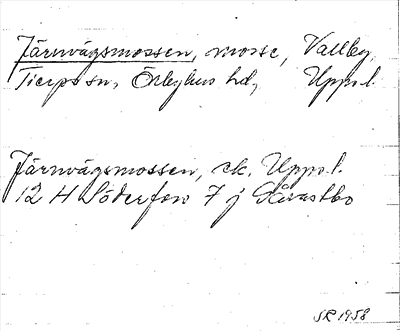 Järnvägsmossen, mosse, Vallby,
Tierps sn, Örbyhus hd, Uppl.
Järnvägsmossen, ek. Uppl.
12 H Söderfors 7 j
SR 1958